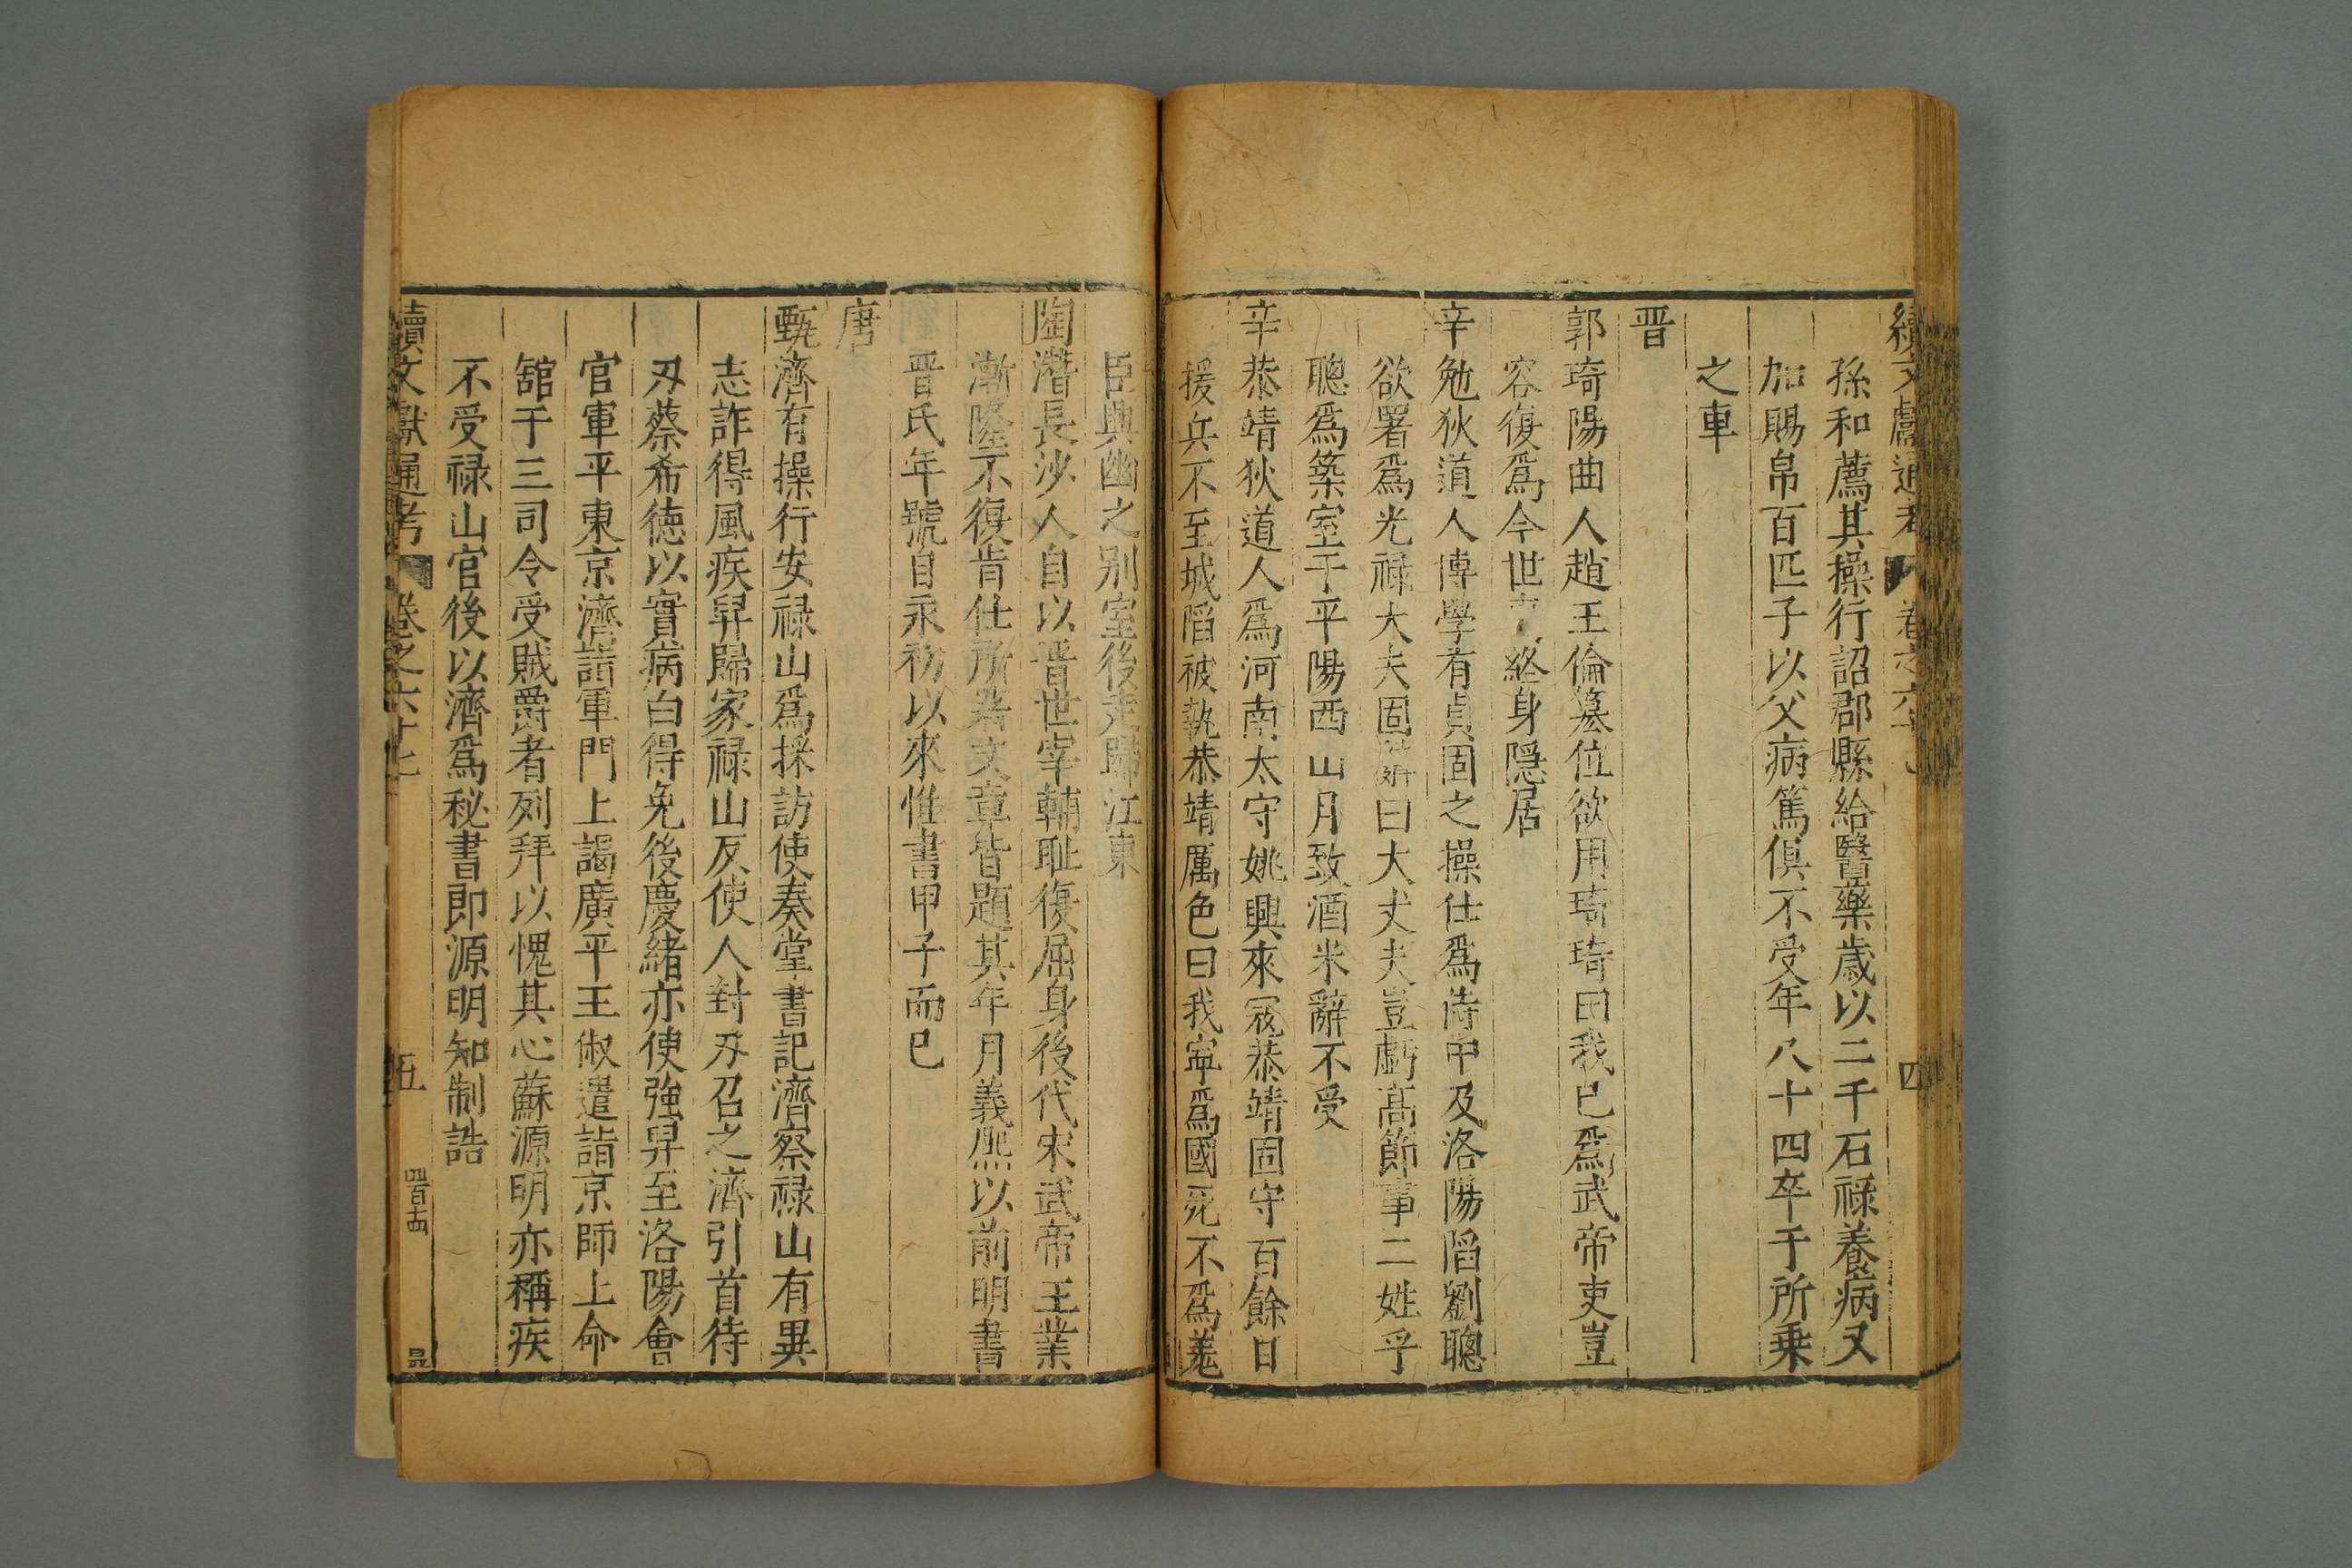 續文獻通考 卷之六十七 四
孫和薦其操行詔郡縣給醫藥歳以二千石祿養病又
加賜帛百匹子以父病篤俱不受年八十四卒于所乗
之車
晋
郭琦陽曲人趙王倫簒位欲用琦琦曰我已爲武帝吏豈
容復爲今世吏終身隱居
辛勉狄道人博學有貞固之操仕爲侍中及洛陽陷劉聰
欲署爲光祿大夫固辭曰大丈夫豈虧髙節事二姓乎
聰爲築室于平陽西山月致酒米辭不受
辛恭靖狄道人爲河南太守姚興來冦恭靖固守百餘日
援兵不至城陷被執恭靖厲色曰我寧爲國死不爲羌
臣興幽之别室後走歸江東
陶潛長沙人自以晋世宰輔耻復屈身後代宋武帝王業
漸隆不復肯仕所著文章皆題其年月義熙以前明書
晋氏年號自永初以來惟書甲子而已
唐
甄濟有操行安禄山爲採訪使奏堂書記濟察禄山有異
志詐得風疾舁歸家禄山反使人對刃召之濟引首待
刃蔡希徳以實病白得免後慶緒亦使強舁至洛陽會
官軍平東京濟詣軍門上謁廣平王俶遣詣京師上命
舘于三司令受賊爵者列拜以愧其心蘇源明亦稱疾
不受禄山官後以濟爲秘書郎源明知制誥
續文獻通考 卷之六十七 五